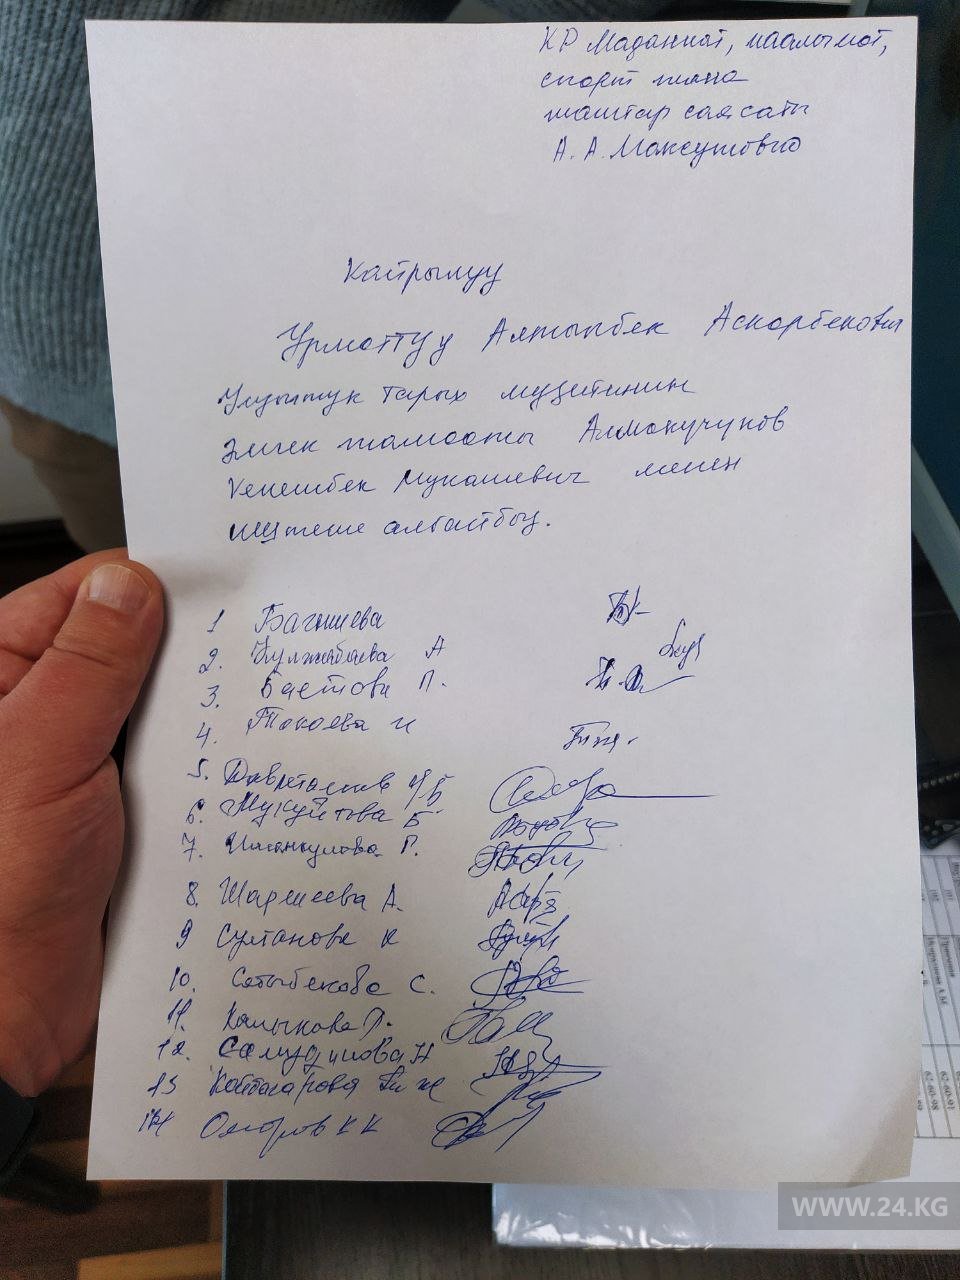 КР Маданият, маалымат,
спорт жана
жаштар саясаты
А. А. Максутовго
Кайрылуу
Урматтуу Алтынбек Аскарбекович
Улуттук тарых музейинин
Эмгек жамааты Алмакучуков
Кенешбек Мукашевич менен
иштеше албайбыз.
1 Багышева
2. Кулжабаева А
3. Баетова П.
4. Токоева И
5.
6. Мукуйтова Б
7. Иманкулова Г.
8. Шаршеева А.
9 Султанова К
10. Сатыбекова С.
11. Калыкова П.
12. Салудинова Н
13
14 Омаров К К
WWW.24.KG